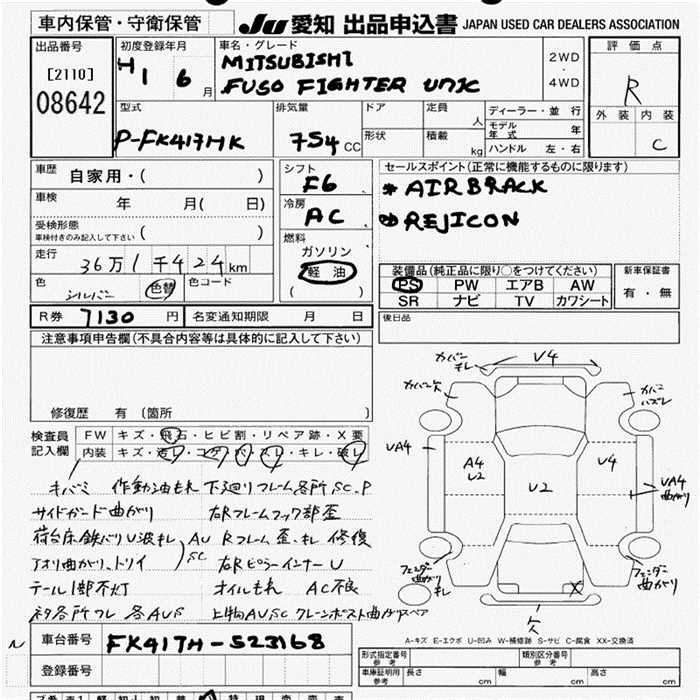 車内保管・守衛保管
Ju 愛知 出品申込書 JAPAN USED CAR DEALERS ASSOCIATION
出品番号
[2110]
08642
初度登録年月
H 1 6 月
車名・グレード
MITSUBISHI
FUSO FIGHTER UNIC
2WD
・
4WD
評価点
R
外装 内装
C
型式
P-FK417HK
排気量
754 CC
ドア
形状
定員
人
積載
kg
ディーラー・並行
モデル年式 年
ハンドル 左・右
車歴
自家用・( )
車検
年 月( 日)
受検形態
車検付きのみ記入して下さい ( )
走行
36万1千424km
色
シルバー
色替
色コード
シフト
F6
冷房
AC
燃料
ガソリン
軽油
( )
セールスポイント(正常に機能するものに限ります)
* AIR BRACK
REJICON
装備品(純正品に限り○をつけてください)
PS PW エアB AW
SR ナビ TV カワシート
新車保証書
有・無
R券 7130 円
名変通知期限 月 日
後日品
注意事項申告欄(不具合内容等は具体的に記入して下さい)
修復歴 有(箇所 )
検査員
記入欄
FW キズ・飛石・ヒビ割・リペア跡・X要
内装 キズ・汚レ・コゲ・穴・スレ・キレ・破レ
キバミ 作動油もれ 下廻りフレーム各所SC.P
サイドガード曲がり 右Rフレームフック部歪
荷台床鉄バリU波キレ AU Rフレーム歪.キレ修復
アオリ曲がり、トリイ SC 右RピラーインナーU
テール1部不灯 オイルもれ AC不良
各所 各AUS 上物AUSC クレーンポスト曲がり
カバーキレ V4
カバー欠
カバーハズレ
UA4
A4
U2
U2
U4
UA4
曲がり
フェンダー
曲がり
キレ
フェンダー
曲がり
X
欠
A-キズ E-エクボ U-凹み W-補修跡 S-サビ C-腐食 XX-交換済
車台番号 FK417H-523168
登録番号
型式指定番号
参考
類別区分番号
参考
車庫証明用
参考
長さ cm 幅 cm 高さ cm